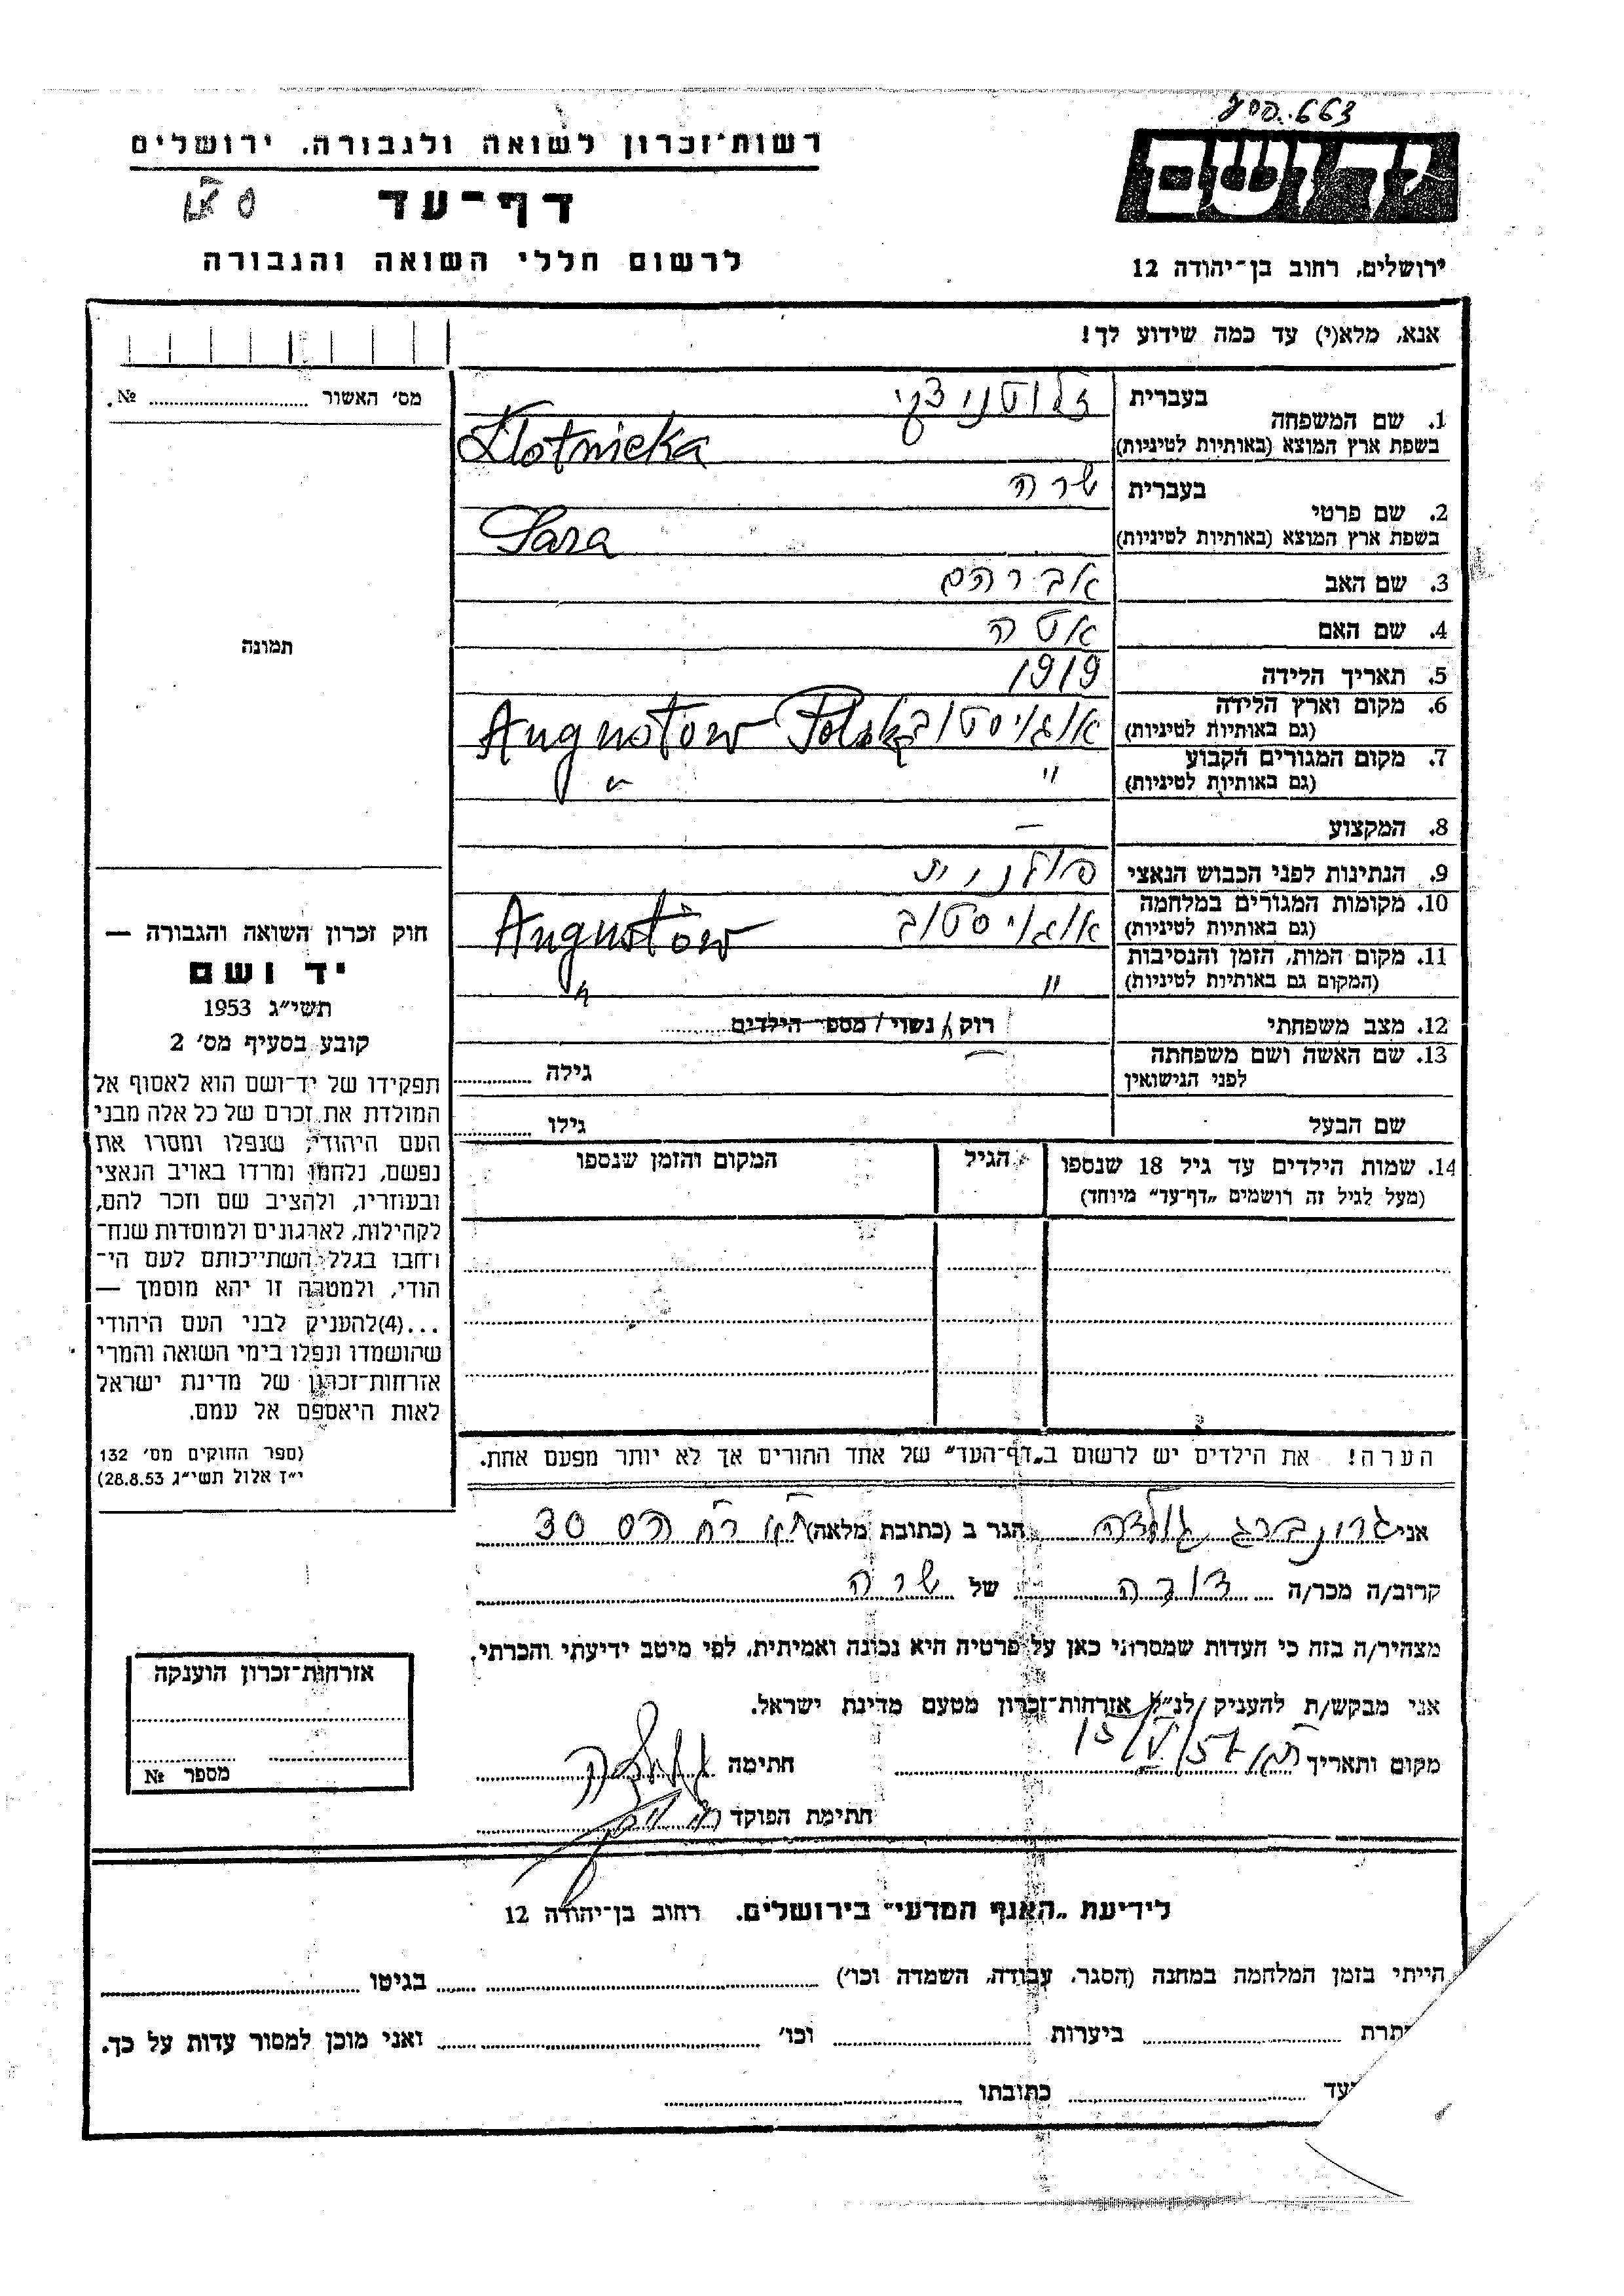 663
רשות־זכרון לשואה ולגבורה, ירושלים
דף־עד
לרשום חללי השואה והגבורה
יד ושם
ירושלים, רחוב בן־יהודה 12
אנא, מלא(י) עד כמה שידוע לך!
מס׳ האשור ............ №.
תמונה
חוק זכרון השואה והגבורה —
יד ושם
תשי״ג 1953
קובע בסעיף מס׳ 2
תפקידו של יד־ושם הוא לאסוף אל
המולדת את זכרם של כל אלה מבני
העם היהודי, שנפלו ומסרו את
נפשם, נלחמו ומרדו באויב הנאצי
ובעוזריו, ולהציב שם וזכר להם,
לקהילות, לארגונים ולמוסדות שנח־
רחבו בגלל השתייכותם לעם הי־
הודי, ולמטרה זו יהא מוסמך —
...(4)להעניק לבני העם היהודי
שהושמדו ונפלו בימי השואה והמרי
אזרחות־זכרון של מדינת ישראל
לאות היאספם אל עמם.
(ספר החוקים מס׳ 132
י״ז אלול תשי״ג 28.8.53)
1. שם המשפחה בעברית זלוטניצקי
בשפת ארץ המוצא (באותיות לטיניות) Zlotnicka
2. שם פרטי בעברית שרה
בשפת ארץ המוצא (באותיות לטיניות) Sara
3. שם האב אברהם
4. שם האם אטה
5. תאריך הלידה 1919
6. מקום וארץ הלידה אוגויסטוב Augustow Polska
(גם באותיות לטיניות)
7. מקום המגורים הקבוע " "
(גם באותיות לטיניות)
8. המקצוע —
9. הנתינות לפני הכבוש הנאצי פולנית
10. מקומות המגורים במלחמה אוגויסטוב Augustòw
(גם באותיות לטיניות)
11. מקום המות, הזמן והנסיבות " "
(המקום גם באותיות לטיניות)
12. מצב משפחתי רוק/ נשוי/ מספר הילדים
13. שם האשה ושם משפחתה — גילה
לפני הנישואין
שם הבעל גילו
14. שמות הילדים עד גיל 18 שנספו הגיל המקום והזמן שנספו
(מעל לגיל זה רושמים „דף־עד״ מיוחד)
הערה! את הילדים יש לרשום ב„דף־העד״ של אחד ההורים אך לא יותר מפעם אחת.
אני גרונברג גולדה הגר ב (כתובת מלאה) ת״א רח הס 30
קרוב/ה מכר/ה דודה של שרה
מצהיר/ה בזה כי העדות שמסרתי כאן על פרטיה היא נכונה ואמיתית, לפי מיטב ידיעתי והכרתי.
אני מבקש/ת להעניק לנ״ל אזרחות־זכרון מטעם מדינת ישראל.
מקום ותאריך ת״א 13/V/57 חתימה
חתימת הפוקד
אזרחות־זכרון הוענקה
מספר №
לידיעת „האגף המדעי״ בירושלים. רחוב בן־יהודה 12
הייתי בזמן המלחמה במחנה (הסגר, עבודה, השמדה וכו׳) בגיטו
תרת ביערות וכו׳ ואני מוכן למסור עדות על כך.
עד כתובתו